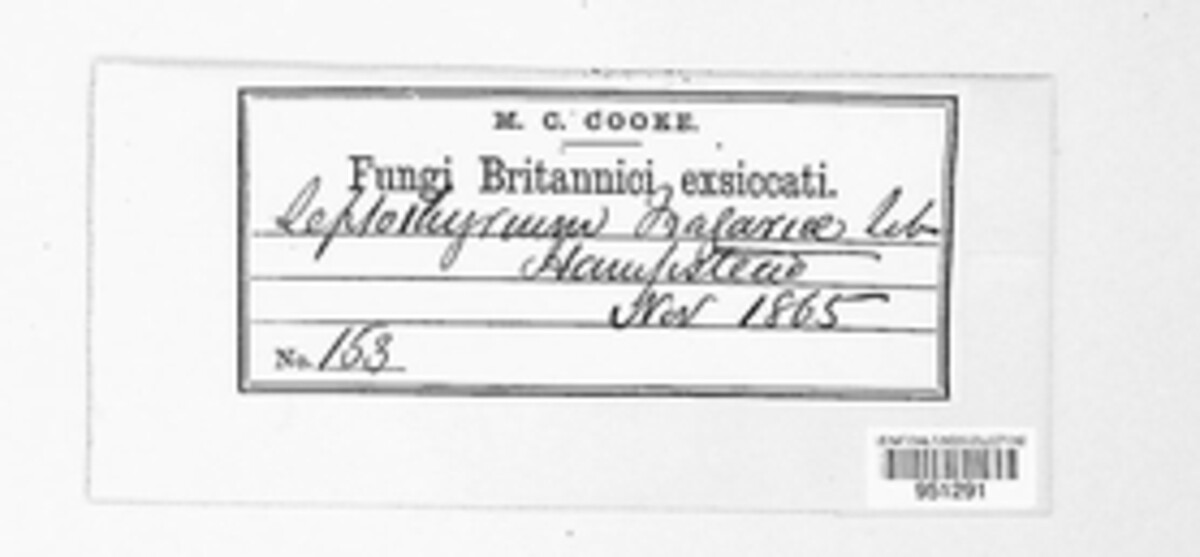 M. C. COOKE.
Fungi Britannici exsiccati.
Leptothyrium Fragariae Lib
Hampstead
Nov 1865
No. 153
951291